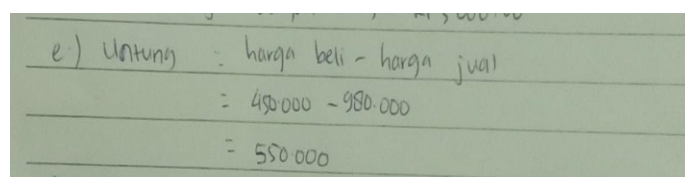 e.) Untung : harga beli - harga jual
= 450.000 - 980.000
= 550.000